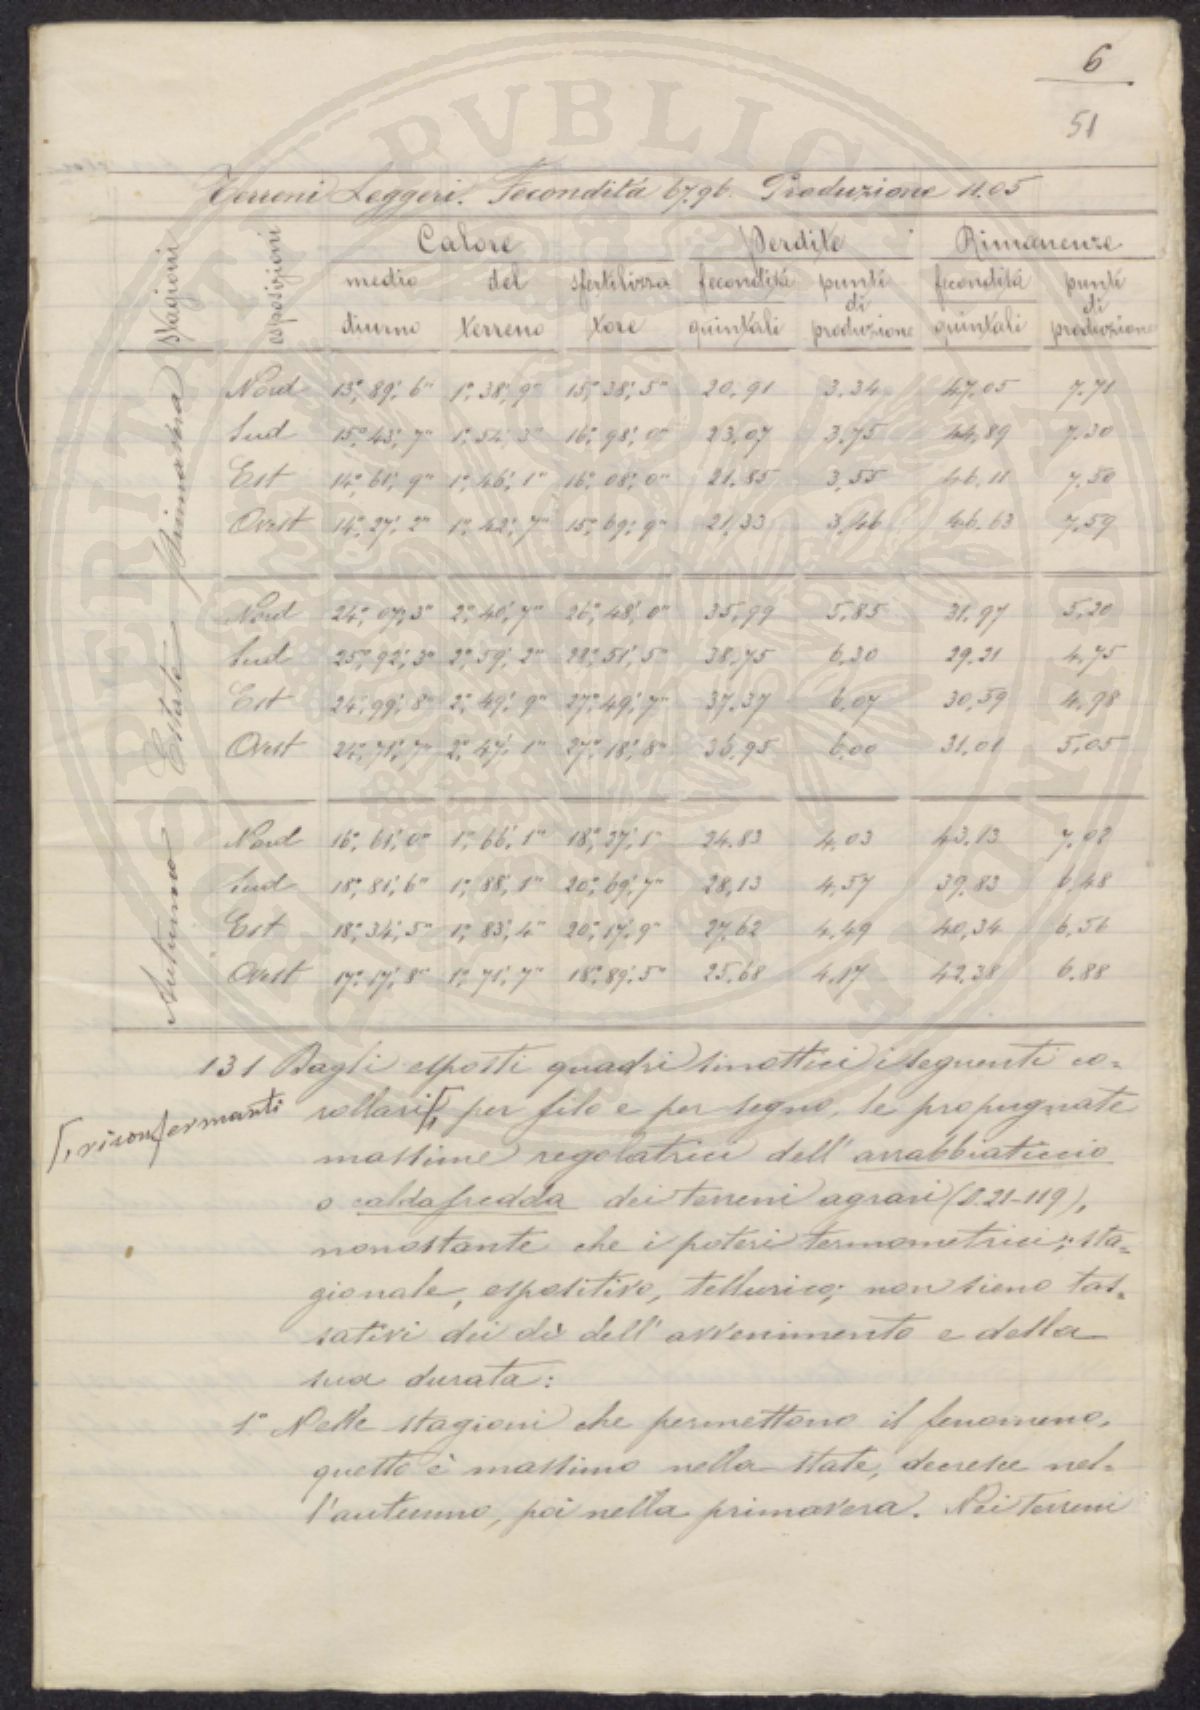 6
51
Terreni Leggeri. Fecondità 67.96. Produzione 11.05
Stagioni esposizioni Calore Perdite Rimanenze
medio del sfertilizza fecondità punti fecondità punti
di di
diurno terreno tore quintali produzione quintali produzione
Primavera
Nord 13°, 89', 6" 1°, 38', 9" 15°, 38', 5" 20,91 3.34 47,05 7.71
Sud 15°, 43', 7" 1°, 54', 3" 16°, 98', 0" 23,07 3,75 44,89 7.30
Est 14°, 61', 9" 1°, 46', 1" 16°, 08', 0" 21.85 3,55 46,11 7,50
Ovest 14°, 27', 2" 1°, 42', 7" 15°, 69', 9" 21,33 3,46 46,63 7,59
Estate
Nord 24°, 07', 3" 2°, 40', 7" 26°, 48', 0" 35,99 5,85 31,97 5,20
Sud 25°, 92', 3" 2°, 59', 2" 28°, 51', 5" 38,75 6,30 29,21 4,75
Est 24°, 99', 8" 2°, 49', 9" 27°, 49', 7" 37,37 6,07 30,59 4,98
Ovest 24°, 71', 7" 2°, 47', 1" 27°, 18', 8" 36,95 6,00 31,01 5,05
Autunno
Nord 16°, 61', 0" 1°, 66', 1" 18°, 27', 1" 24.83 4,03 43,13 7,02
Sud 18°, 81', 6" 1°, 88', 1" 20°, 69', 7" 28,13 4,57 39,83 6,48
Est 18°, 34', 5" 1°, 83', 4" 20°, 17', 9" 27,62 4,49 40,34 6,56
Ovest 17°, 17', 8" 1°, 71', 7" 18°, 89', 5" 25,68 4,17 42,38 6.88
131 Dagli esposti quadri sinottici i seguenti co-
rollari Γ, per filo e per segno, le propugnate
Γ, risonfermanti
massime regolatrici dell'arrabbiaticcio
o caldafredda dei terreni agrari (§. 21-119),
nonostante che i poteri termometrici; sta-
gionale, espositivo, tellurico; non sieno tas-
sativi dei dì dell'avvenimento e della
sua durata:
1° Nelle stagioni che permettono il fenomeno,
questo è massimo nella state, decresce nel-
l'autunno, poi nella primavera. Nei terreni